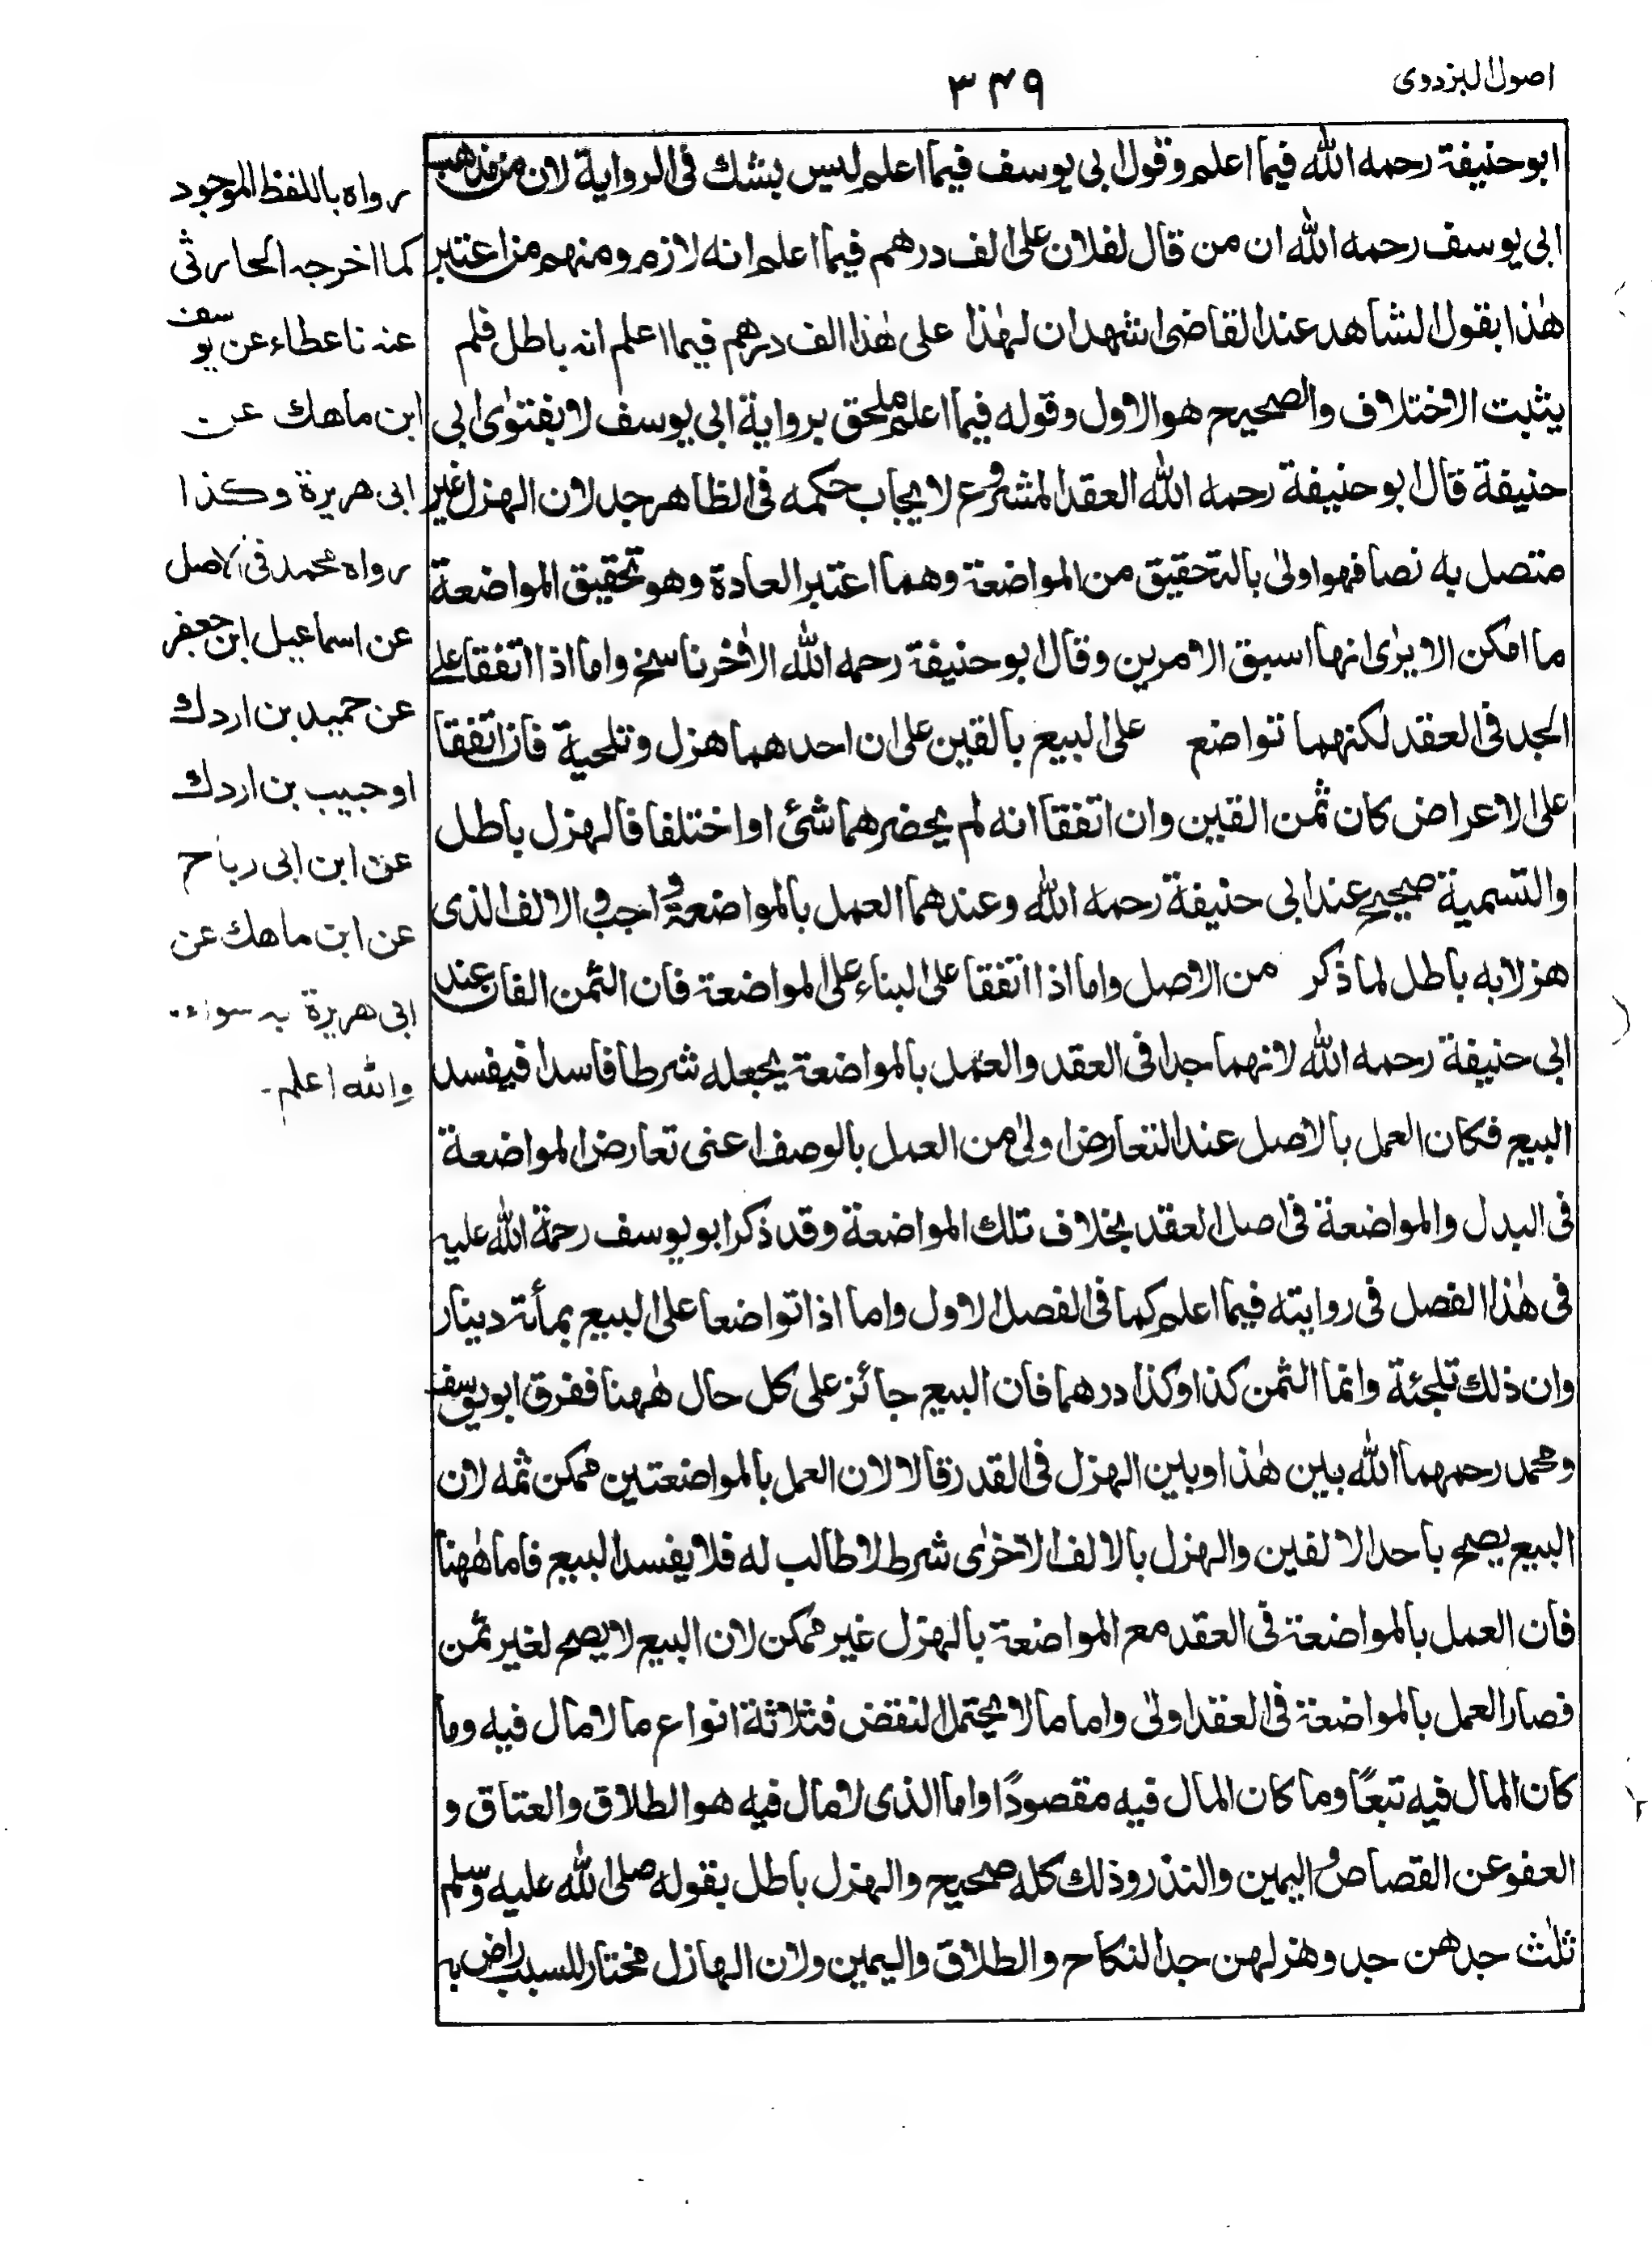 اصول البزدوى
٣٤٩
ابو حنيفة رحمه الله فيما اعلم وقول ابى يوسف فيما اعلم ليس بشك فى الرواية لان من مذهب
ابى يوسف رحمه الله ان من قال لفلان على الف درهم فيما اعلم انه لازم ومنهم من اعتبر
هٰذا بقول الشاهد عند القاضى اشهد ان لهٰذا على هٰذا الف درهم فيما اعلم انه باطل فلم
يثبت الاختلاف والصحيح هو الاول وقوله فيما اعلم ملحق برواية ابى يوسف لا بفتوٰى ابى
حنيفة قال ابو حنيفة رحمه الله العقد المشروع لايجاب حكمه فى الظاهر جد لان الهزل غير
متصل به نصا فهو اولىٰ بالتحقيق من المواضعة وهما اعتبر العادة وهو تحقيق المواضعة
ما امكن الا يرٰى انها اسبق الامرين وقال ابو حنيفة رحمه الله الاٰخر ناسخ واما اذا اتفقا على
الجد فى العقد لكنهما تواضع على البيع بالفين على ان احدهما هزل وتلجية فان اتفقا
على الاعراض كان ثمن الفين وان اتفقا انه لم يحضرهما شئ او اختلفا فالهزل باطل
والتسمية صحيح عند ابى حنيفة رحمه الله وعندهما العمل بالمواضعة واجب و الالف الذى
هزلا به باطل لما ذكر من الاصل واما اذا اتفقا على البناء على المواضعة فان الثمن الفان عند
ابى حنيفة رحمه الله لانهما جدا فى العقد والعمل بالمواضعة يجعله شرطا فاسدا فيفسد
البيع فكان العمل بالاصل عند التعارض اولىٰ من العمل بالوصف اعنى تعارض المواضعة
فى البدل والمواضعة فى اصل العقد بخلاف تلك المواضعة وقد ذكر ابو يوسف رحمة الله عليه
فى هٰذا الفصل فى روايته فيما اعلم كما فى الفصل الاول واما اذا تواضعا على البيع بمأئة دينار
وان ذلك تلجئة وانما الثمن كذا وكذا درهما فان البيع جائز على كل حال هٰهنا ففرق ابو يوسف
ومحمد رحمهما الله بين هٰذا وبين الهزل فى القدر قالا لان العمل بالمواضعتين ممكن ثمه لان
البيع يصح باحد الالفين والهزل بالالف الاخرٰى شرط لا طالب له فلا يفسد البيع فاما هٰهنا
فان العمل بالمواضعة فى العقد مع المواضعة بالهزل غير ممكن لان البيع لا يصح لغير ثمن
فصار العمل بالمواضعة فى العقد اولىٰ واما ما لا يحتمل النقض فثلاثة انواع ما لا مال فيه وما
كان المال فيه تبعًا وما كان المال فيه مقصودًا واما الذى لا مال فيه هو الطلاق والعتاق و
العفو عن القصاص واليمين والنذر وذلك كله صحيح والهزل باطل بقوله صلى الله عليه وسلم
ثلٰث جدهن جد وهزلهن جد النكاح والطلاق واليمين ولان الهازل مختار للسبب راض به
رواه باللفظ الموجود
كما اخرجه الحارثى
عنه نا عطاء عن يوسف
ابن ماهك عن
ابى هريرة وكذا
رواه محمد فى الاصل
عن اسماعيل ابن جعفر
عن حميد بن اردك
او حبيب بن اردك
عن ابن ابى رباح
عن ابن ماهك عن
ابى هريرة به سواء..
والله اعلم۔